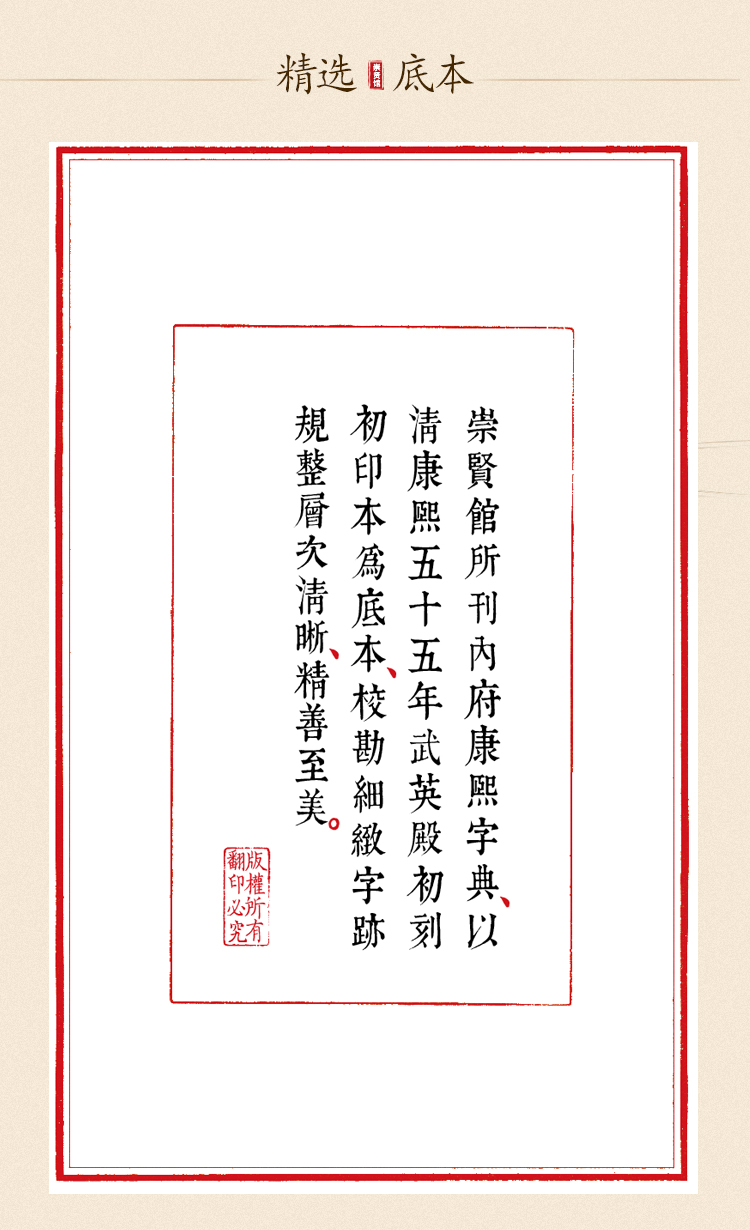 精选 崇贤馆 底本
崇賢館所刊內府康熙字典、以
清康熙五十五年武英殿初刻
初印本爲底本、校勘細緻字跡
規整層次清晰、精善至美。
版權所有
翻印必究